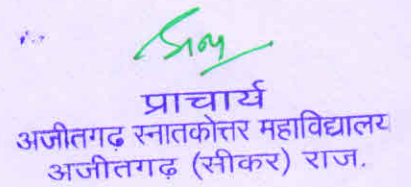 प्राचार्य
अजीतगढ़ स्नातकोत्तर महाविद्यालय
अजीतगढ़ (सीकर) राज.